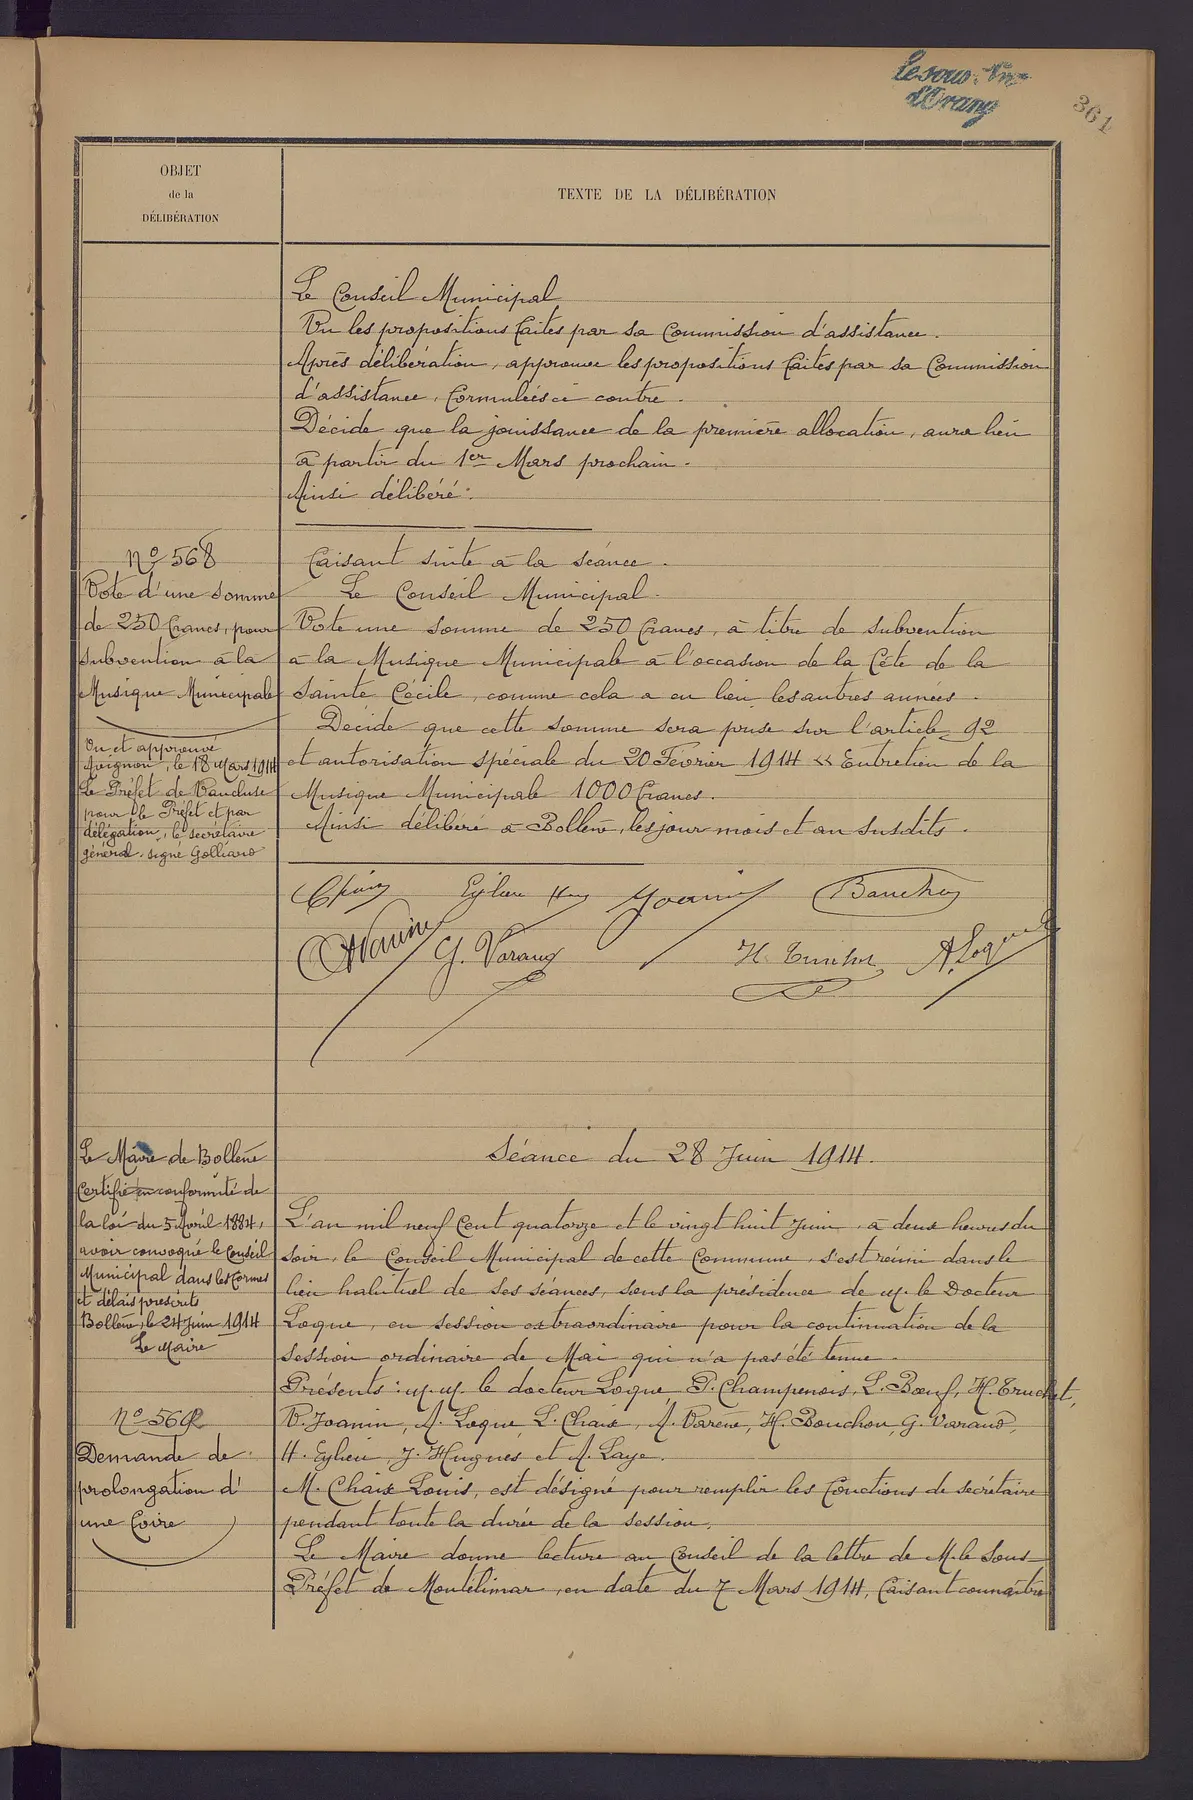 Le sous-Pré
d'Orang
361
OBJET
de la
DÉLIBÉRATION
TEXTE DE LA DÉLIBÉRATION
Le Conseil Municipal
Vu les propositions faites par sa Commission d'assistance.
Après délibération, approuve les propositions faites par sa Commission
d'assistance, formulées ci contre.
Décide que la jouissance de la première allocation, aura lieu
à partir du 1er Mars prochain.
Ainsi délibéré.
No 568
Vote d'une somme
de 250 francs, pour
subvention à la
Musique Municipale
Vu et approuvé
Avignon, le 18 Mars 1914
Le Préfet de Vaucluse
pour le Préfet et par
délégation, le secrétaire
général. signé Golliard
Faisant suite à la séance.
Le Conseil Municipal.
Vote une somme de 250 francs, à titre de subvention
à la Musique Municipale à l'occasion de la fête de la
Sainte Cécile, comme cela a eu lieu les autres années.
Décide que cette somme sera prise sur l'article 92
et autorisation spéciale du 20 Février 1914 << Entretien de la
Musique Municipale 1000 francs.
Ainsi délibéré à Bollène, les jour mois et an susdits.
Eylieu Joanin Bouchon
G. Varaud H. Truchet A. Loque
Le Maire de Bollène
certifie en conformité de
la loi du 5 Avril 1884,
avoir convoqué le Conseil
Municipal dans les formes
et délais prescrits
Bollène, le 24 Juin 1914
Le Maire
No 569
Demande de
prolongation d'
une foire
Séance du 28 Juin 1914.
L'an mil neuf cent quatorze et le vingt huit Juin, à deux heures du
soir, le Conseil Municipal de cette Commune, s'est réuni dans le
lieu habituel de ses séances, sous la présidence de M. le Docteur
Loque, en session extraordinaire pour la continuation de la
session ordinaire de Mai qui n'a pas été tenue.
Présents : M.M. le docteur Loque, P. Champenois, L. Bœuf, H. Truchet,
V. Joanin, A. Loque, L. Chaix, A. Varène, H. Bouchon, G. Varaud,
H. Eylieu, J. Hugues et A. Laye.
M. Chaix Louis, est désigné pour remplir les fonctions de secrétaire
pendant toute la durée de la session.
Le Maire donne lecture au Conseil de la lettre de M. le Sous-
Préfet de Montélimar, en date du 7 Mars 1914, faisant connaître